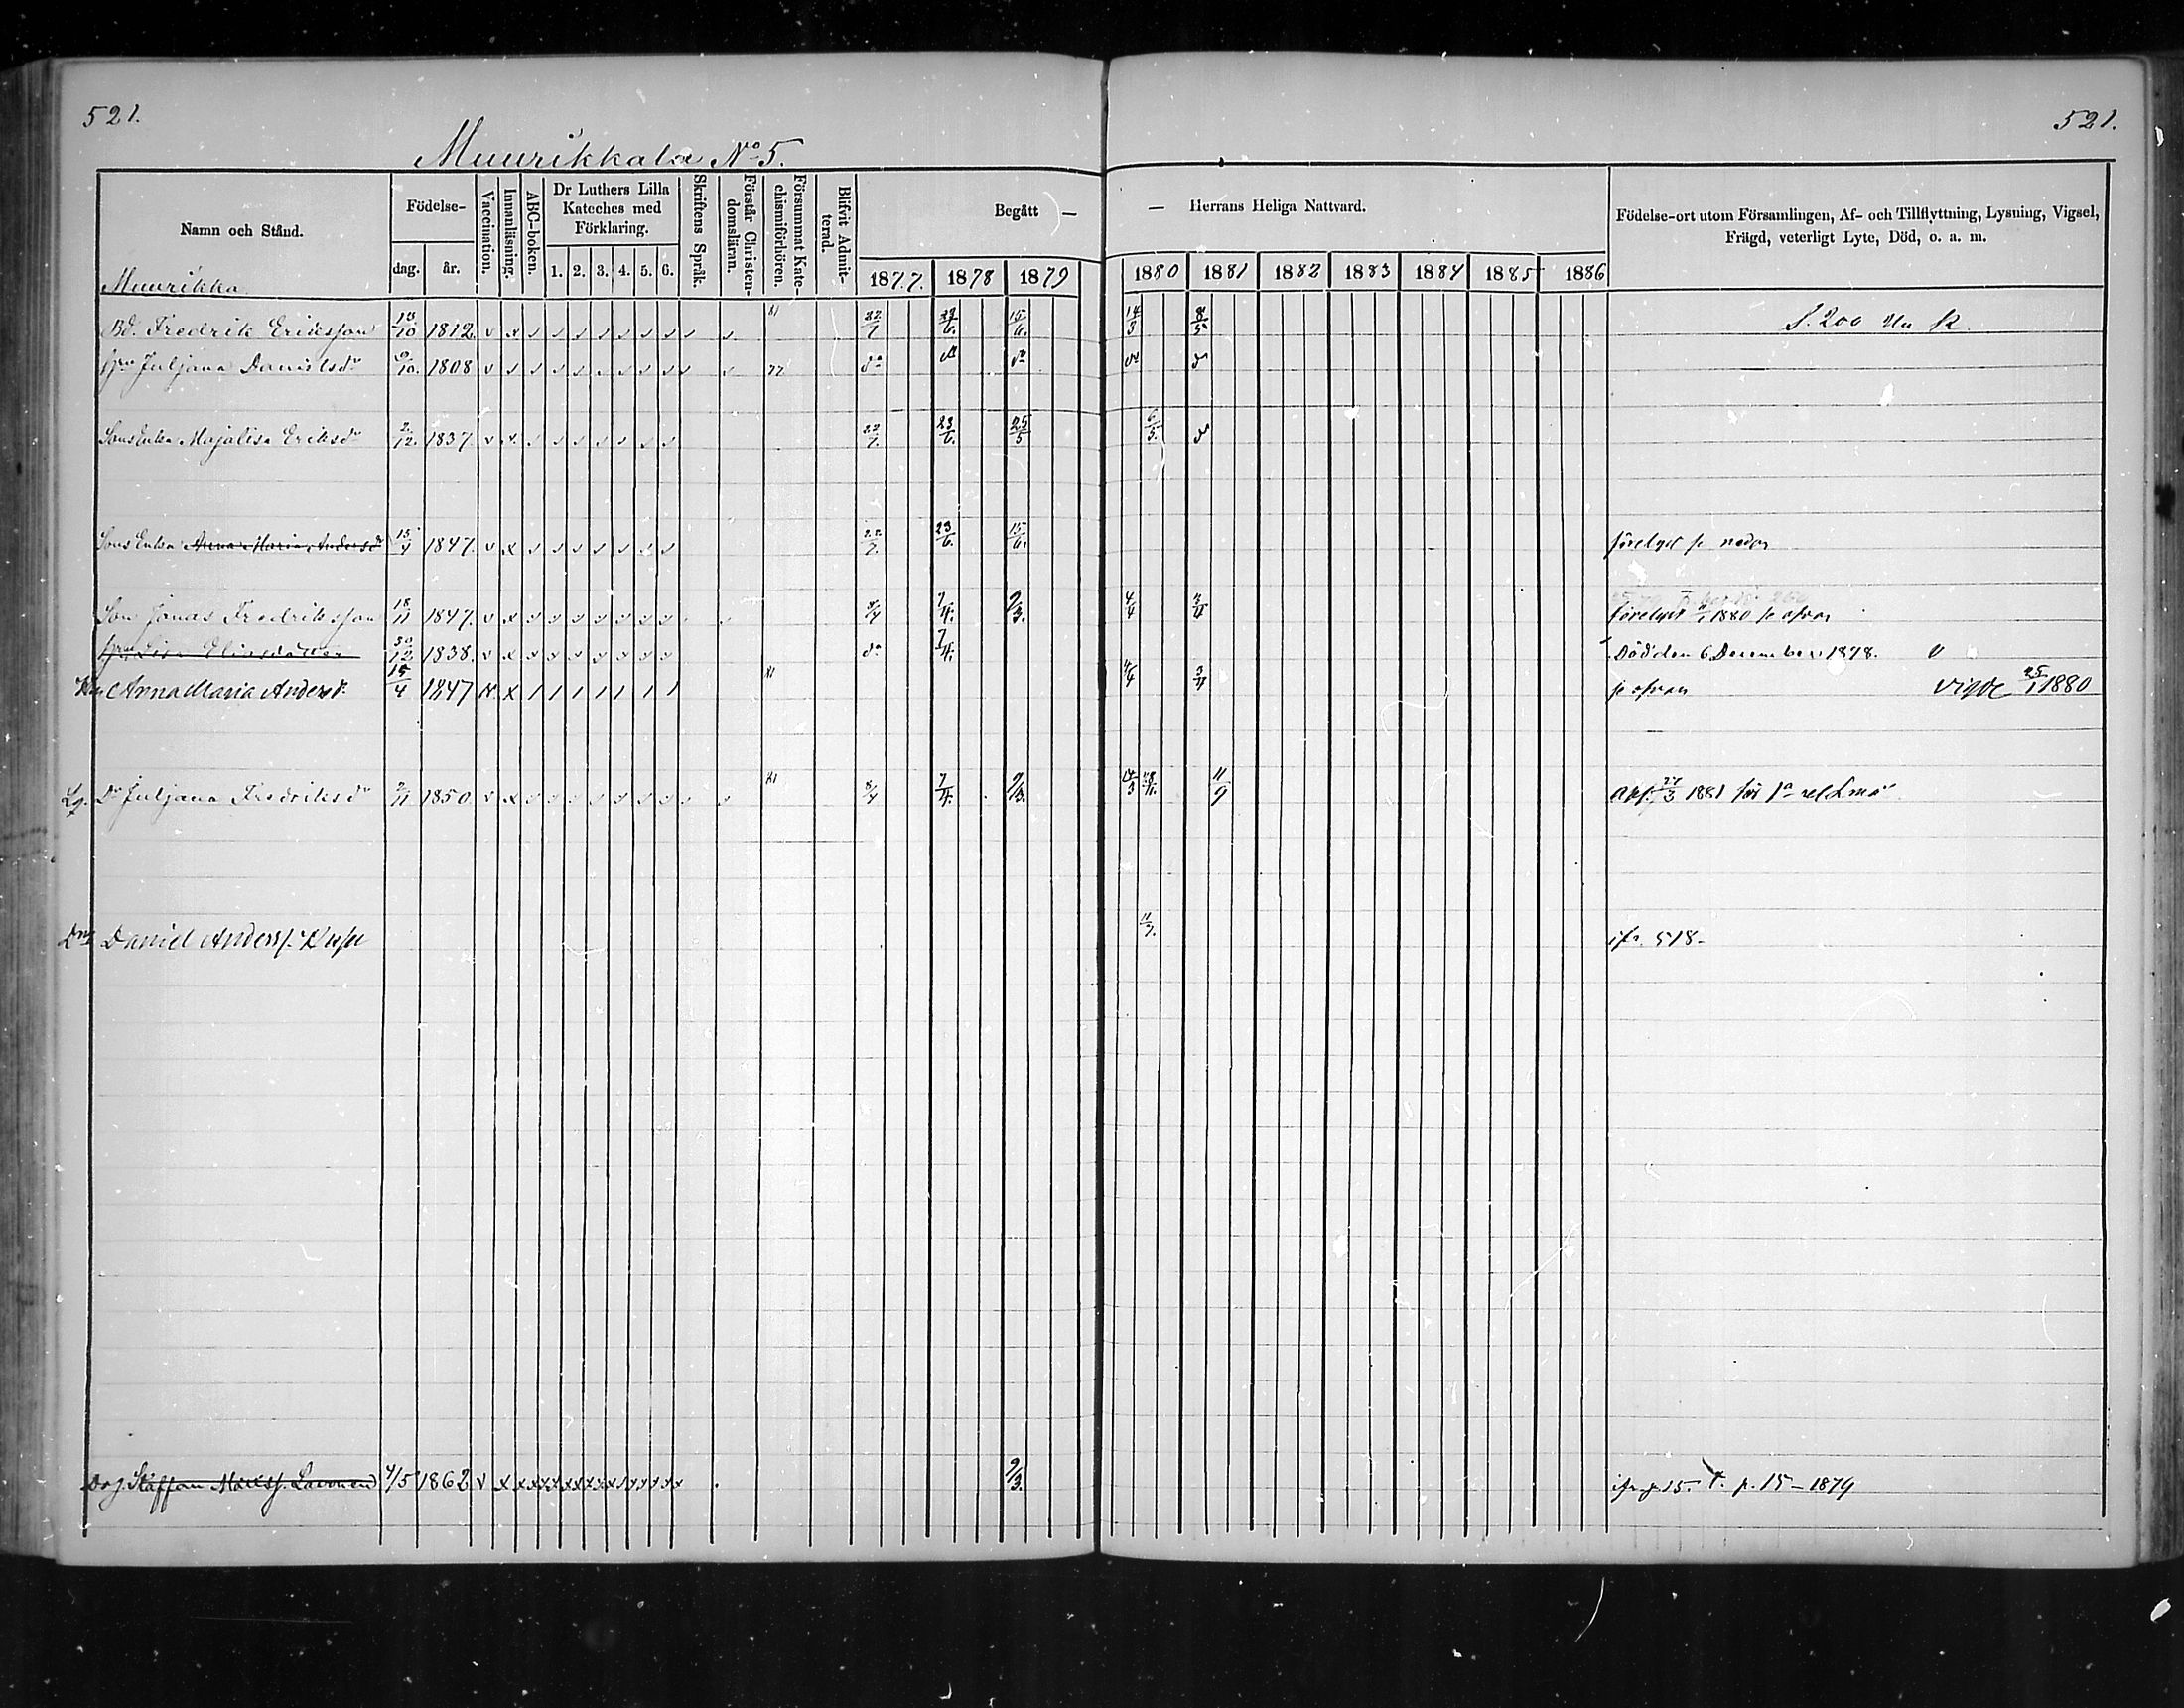 521.
521.
Muurikkala No 5.
Namn och Stånd.
Födelse-
dag.
år.
Vaccination.
Innanläsning.
ABC-boken.
Dr Luthers Lilla
Kateches med
Förklaring.
1. 2. 3. 4. 5. 6.
Skriftens Språk.
Förstår Christen-
domsläran.
Försummat Kate-
chismiförhören.
Blifvit Admit-
terad.
Begått —
— Herrans Heliga Nattvard.
1877. 1878 1879
1880 1881 1882 1883 1884 1885 1886
Födelse-ort utom Församlingen, Af- och Tillflyttning, Lysning, Vigsel,
Frägd, veterligt Lyte, Död, o. a. m.
Muurikka
Bd. Fredrik Eriksson 1812 v x 81 22/7 15/6. 14/3 8/5 S. 200
Juljana Danielsdr 1808 77 do do do do
Sons Enka Majalisa Eriksdr 2/12. 1837. v x 22/7. 23/6. 25/5 6/5. do
Sons Enka Anna Maria Andersdr 15/4 1847. v x 22/7. 23/6. 15/6.
Son Jonas Fredriksson 18/11 1847. v x 8/4 7/4. 9/3. 4/4 1880
Lisa Eliasdotter 30/12 1838. v x do 7/4. Död den 6 December 1878.
Anna Maria Andersdr 15/4 1847 x 81 4/4 vigde 25/1 1880
Dr Juljana Fredriksdr 1850 v x 81 8/4 7/4. 9/3. 11/9 1881
Drg Daniel Anderss. 11/7. ifr. 518-
Drg. Staffan Mattss. Lavonen 4/5 1862 v x 9/3. p. 15 – 1879